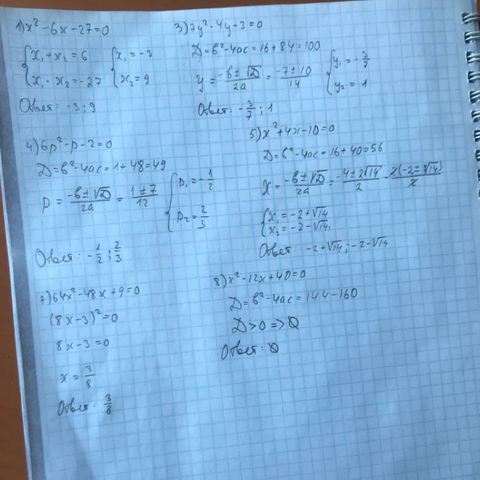 1) x² - 6x - 27 = 0
{ x₁ + x₂ = 6
x₁ · x₂ = -27
{ x₁ = -3
x₂ = 9
Ответ: -3; 9
3) 7y² - 4y - 3 = 0
D = b² - 4ac = 16 + 84 = 100
y = (-b ± √D)/2a = (-7 ± 10)/14
{ y₁ = -3/7
y₂ = 1
Ответ: -3/7; 1
4) 6p² - p - 2 = 0
D = b² - 4ac = 1 + 48 = 49
p = (-b ± √D)/2a = (1 ± 7)/12
{ p₁ = -1/2
p₂ = 2/3
Ответ: -1/2; 2/3
5) x² + 4x - 10 = 0
D = b² - 4ac = 16 + 40 = 56
x = (-b ± √D)/2a = (-4 ± 2√14)/2 = 2(-2 ± √14)/2
{ x₁ = -2 + √14
x₂ = -2 - √14
Ответ: -2 + √14; -2 - √14
7) 64x² - 48x + 9 = 0
(8x - 3)² = 0
8x - 3 = 0
x = 3/8
Ответ: 3/8
8) x² - 12x + 40 = 0
D = b² - 4ac = 144 - 160
D > 0 => Ø
Ответ: Ø